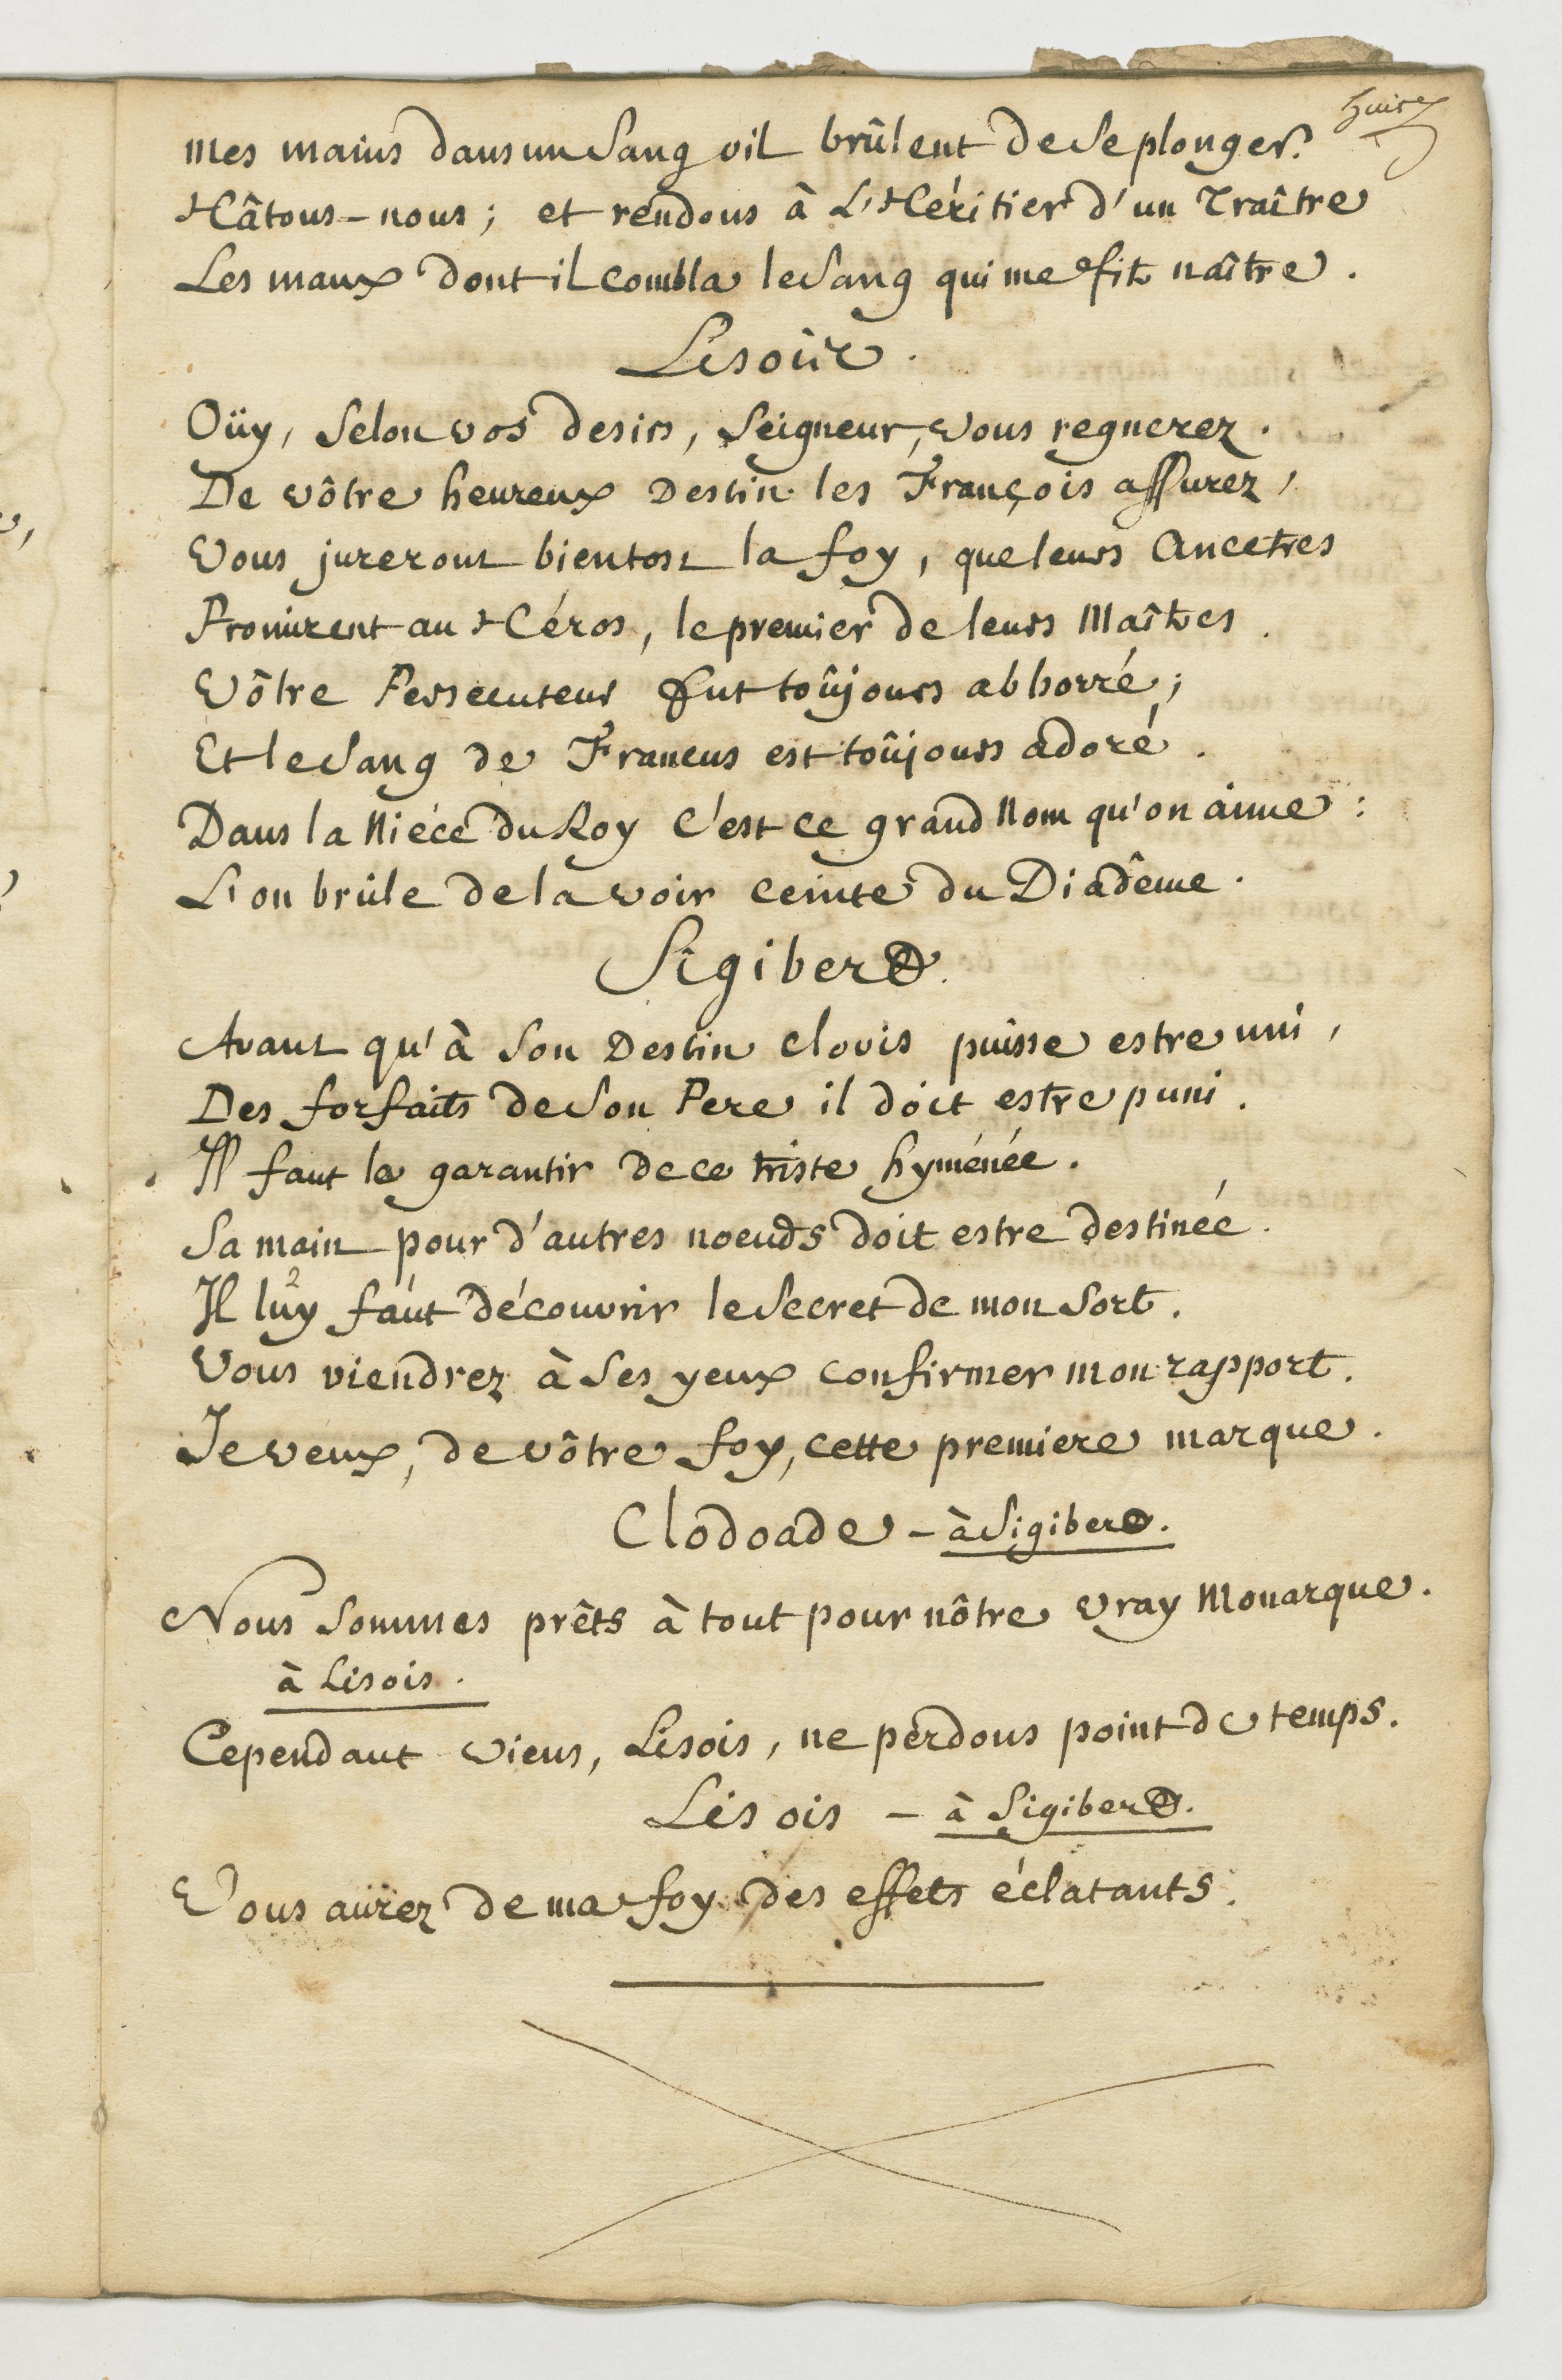 huit
mes mains dans un sang vil brûlent de se plonger.
Hâtons-nous; et rendons à L'Héritier d'un Traître
Les maux dont il combla le sang qui me fit naître.
Lisois.
Oüy, selon vos desirs, Seigneur, vous regnerez.
De vôtre heureux Destin les François assurez,
Vous jureront bientost la foy, que leurs Ancetres
Promirent au Héros, le premier de leurs Maîtres.
Vôtre Persecuteur fut toûjours abhorré;
Et le sang de Francus est toûjours adoré.
Dans la Niéce du Roy c'est ce grand Nom qu'on aime:
L'on brûle de la voir ceinte du Diadême.
Sigibert.
Avant qu'à son Destin Clovis puisse estre uni,
Des forfaits de son Pere il doit estre puni.
Il faut le garantir de ce triste hyménée.
Sa main pour d'autres noeuds doit estre destinée.
Il luy faut découvrir le Secret de mon Sort.
Vous viendrez à ses yeux confirmer mon rapport.
Je veux, de vôtre foy, cette premiere marque.
Clodoade - à Sigibert.
Nous sommes prêts à tout pour nôtre vray Monarque.
à Lisois.
Cependant viens, Lisois, ne perdons point de temps.
Lisois - à Sigibert.
Vous aurez de ma foy des effets éclatants.